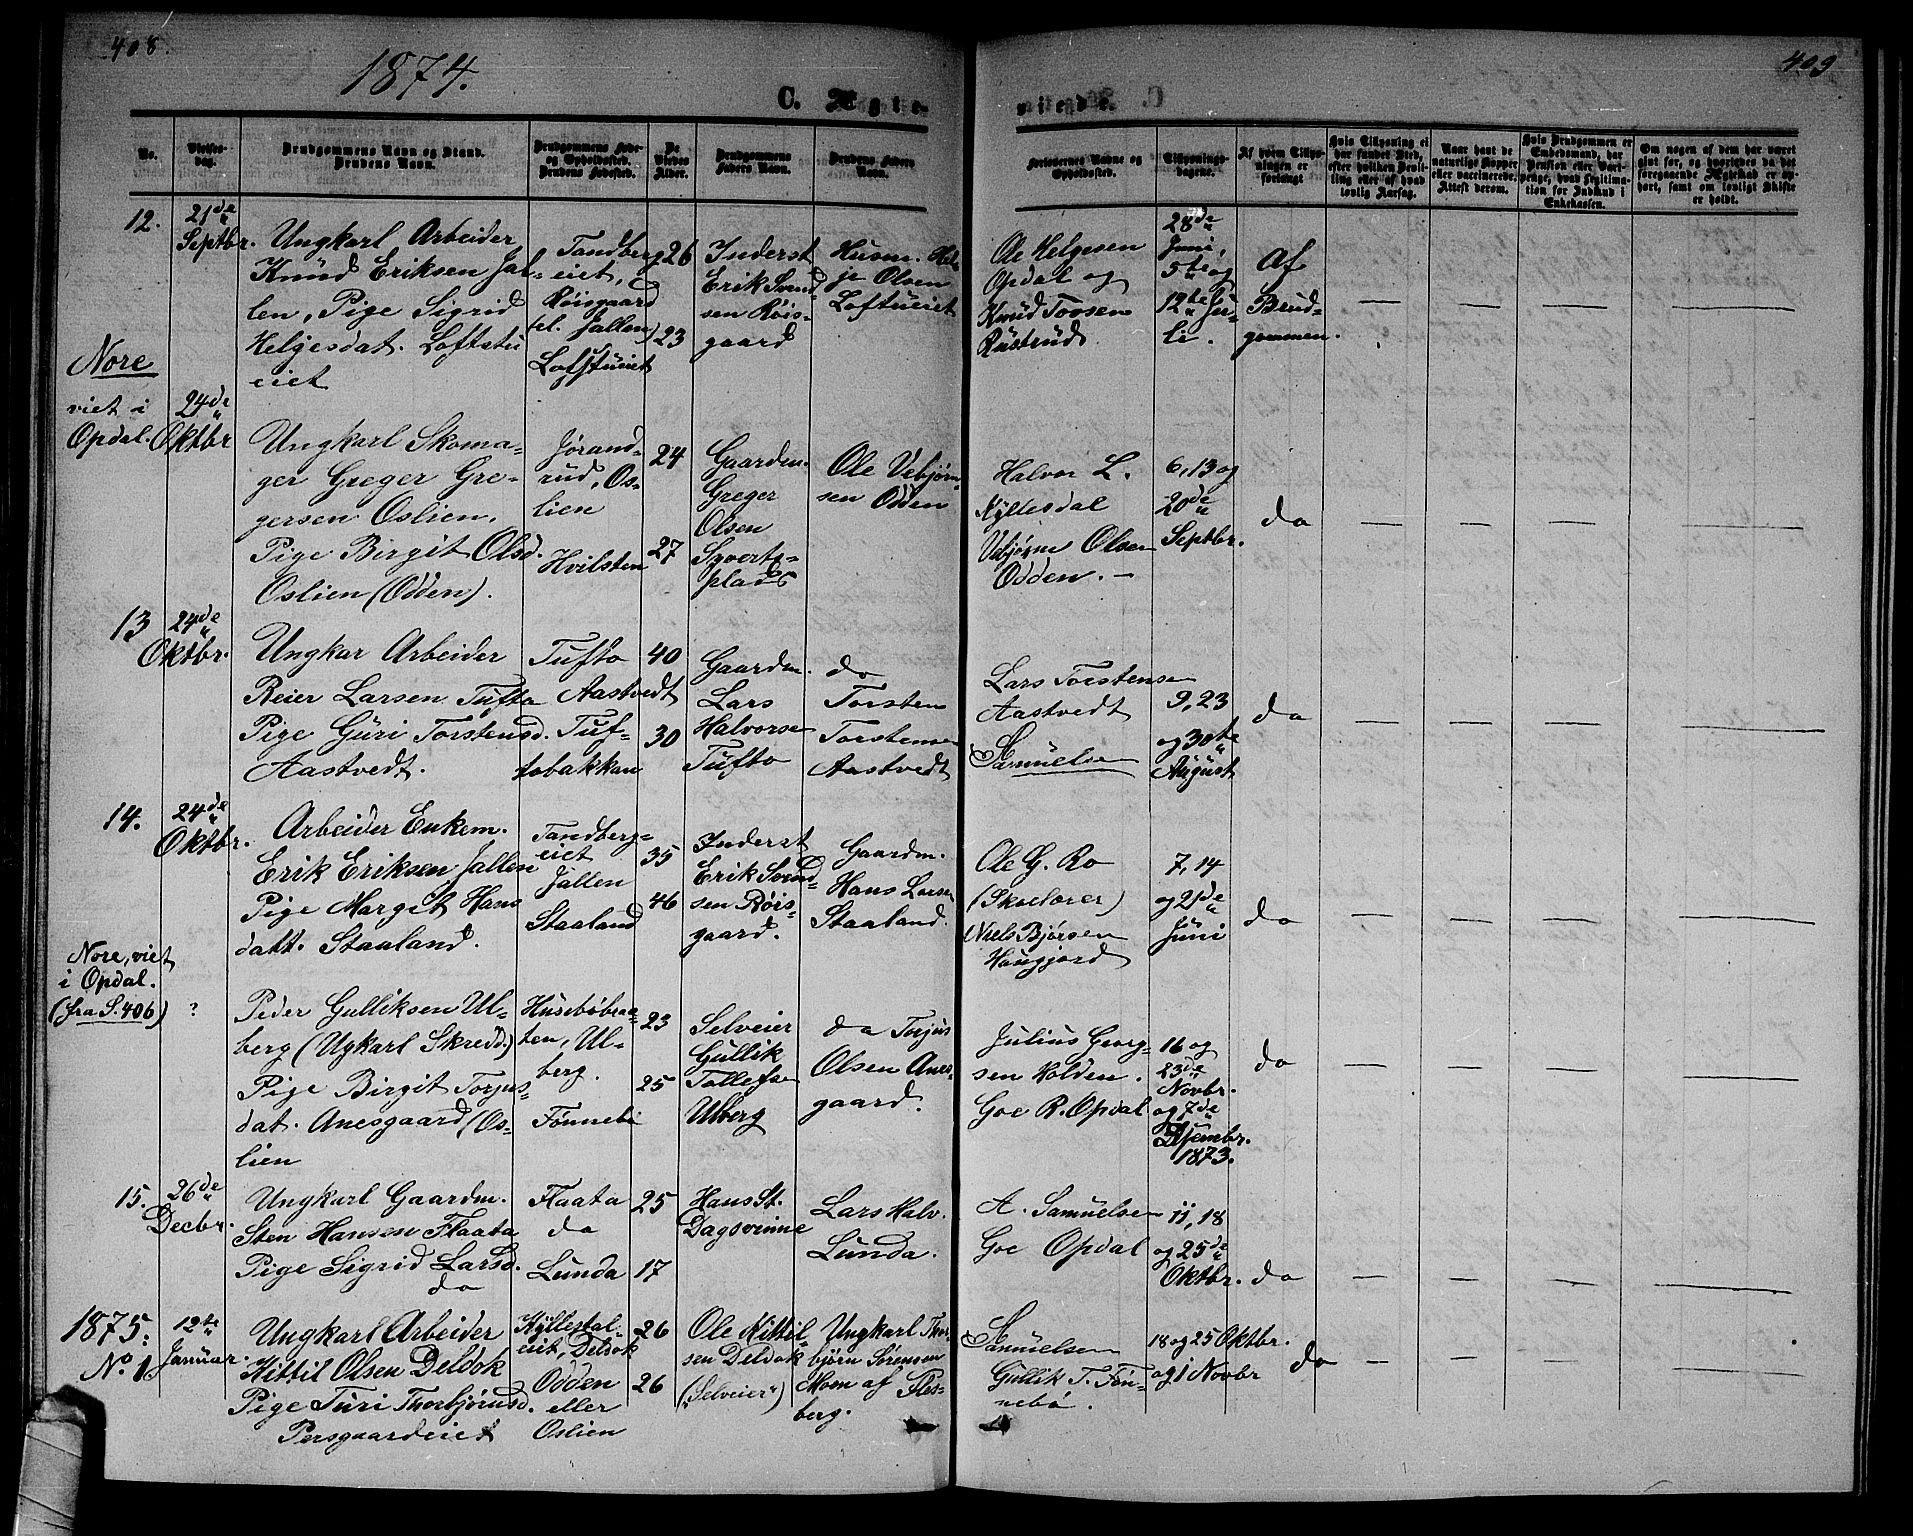 408.
409
1874.
C. Ægte-
viede.
No.
Vielses-
dag.
Brudgommens Navn og Stand.
Brudens Navn.
Brudgommens Føde-
og Opholdssted.
Brudens Fødested.
De
Viedes
Alder.
Brudgommens
Faders Navn.
Brudens Faders
Navn.
Forlovernes Navne og
Opholdssted.
Tillysnings-
dagene.
Af hvem Tillys-
ningen er
forlangt
Hvis Tillysning ei
har fundet Sted,
efter hvilken Bevil-
ling eller af hvad
lovlig Aarsag.
Naar havt de
naturlige Kopper
eller vaccinerede.
Attest derom.
Hvis Brudgommen er
Embedsmand, har
Pension eller Vart-
penge, hvad Legitima-
tion for Indskud i
Enkekassen.
Om nogen af dem har været
gift før, og hvorledes da det
foregaaende Ægteskab er op-
hørt, samt om lovligt Skifte
er holdt.
12.
21de
Septbr.
Ungkarl Arbeider
Knud Eriksen Jal-
len, Pige Sigrid
Helgesdat. Loftstu
eiet
Tandberg
eiet,
Röisgaard
(el. Jallen)
Loftstueiet
26
23
Inderst
Erik Svend-
sen Röis-
gaard
Husm. Hel-
je Olsen
Loftueiet
Ole Helgesen
Opdal og
Knud Tovsen
Rustrud
28de
Juni,
5te og
12te Ju-
li.
Af
Brud-
gommen.
Nore
viet i
Opdal.
24de
Oktbr
Ungkarl Skoma-
ger Greger Gre-
gersen Oslien.
Pige Birgit Olsd.
Oslien (Odden).
Jørand-
rud, Os-
lien
Hvilsten
24
27
Gaardm.
Greger
Olsen
Sverts-
plads
Ole Vebjørn-
sen Odden
Halvor L.
Kyllesdal
Vebjørn Olsen
Odden. –
6, 13 og
20de
Septbr.
do
13
24de
Oktbr.
Ungkar Arbeider
Reier Larsen Tufto
Pige Guri Torstensd.
Aastvedt.
Tufto
Aastvedt
Tuf-
tobakkan
40
30
Gaardm.
Lars
Halvorsen
Tufto
do
Torsten
Torstensen
Aastvedt
Lars Torstensen
Aastvedt
Samuelsen
9, 23
og 30te
August
do
14.
24de
Oktbr.
Arbeider Enkem.
Erik Eriksen Jallen
Pige Margit Hans
datt. Staaland.
Tandberg-
eiet
Jallen
Staaland
35
46
Inderst
Erik Svend-
sen Röis-
gaard.
Gaardm.
Hans Larsen
Staaland.
Ole G. Ro
(Skolelærer)
Niels Bjørsen
Haugjord
7, 14
og 21de
Juni
do
Nore, viet
i Opdal.
(fra S. 406)
?
Peder Gulliksen Ul-
berg (Ugkarl Skredd.)
Pige Birgit Torjus-
dat. Anesgaard (Os-
lien
Husebøbraa-
ten, Ul-
berg.
Fønnebø
23
25
Selveier
Gullik
Tollefsen
Ulberg
do Torjus
Olsen Anes-
gaard.
Julius Georg-
sen Holden.
Goe R. Opdal
16 og
23de
Novbr.
og 7de
Dsembr.
1873.
do
15.
26de
Decbr.
Ungkarl Gaardm.
Sten Hansen Flaata
Pige Sigrid Larsd.
do
Flaata
do
Lunda
25
17
Hans St.
Dagsvinne
Lars Halv.
Lunda.
A. Samuelsen
Goe Opdal
11, 18
og 25de
Oktbr.
do
1875:
No. 1
12te
Januar.
Ungkarl Arbeider
Kittil Olsen Deldok
Pige Turi Thorbjørnsd.
Persgaardeiet
Kyllesdal-
eiet, Deldok
Odden
eller
Oslien
26
26
Ole Kittil-
sen Deldok
("Selveier")
Ungkarl Thor-
bjørn Sørensen
Moen af Fles-
berg.
Samuelsen
Gullik T. Føn-
nebø.
18 og 25 Oktbr.
og 1 Novbr
do